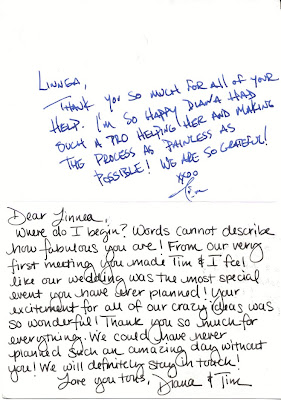 LINNEA,
THANK YOU SO MUCH FOR ALL OF YOUR
HELP. I'M SO HAPPY DIANA HAD
SUCH A PRO HELPING HER AND MAKING
THE PROCESS AS PAINLESS AS
POSSIBLE! WE ARE SO GRATEFUL!
XOXO
Tim
Dear Linnea,
Where do I begin? Words cannot describe
how fabulous you are! From our very
first meeting you made Tim & I feel
like our wedding was the most special
event you have ever planned! Your
excitement for all of our crazy ideas was
so wonderful! Thank you so much for
everything. We could have never
planned such an amazing day without
you! We will definitely stay in touch!
Love you tons, Diana & Tim